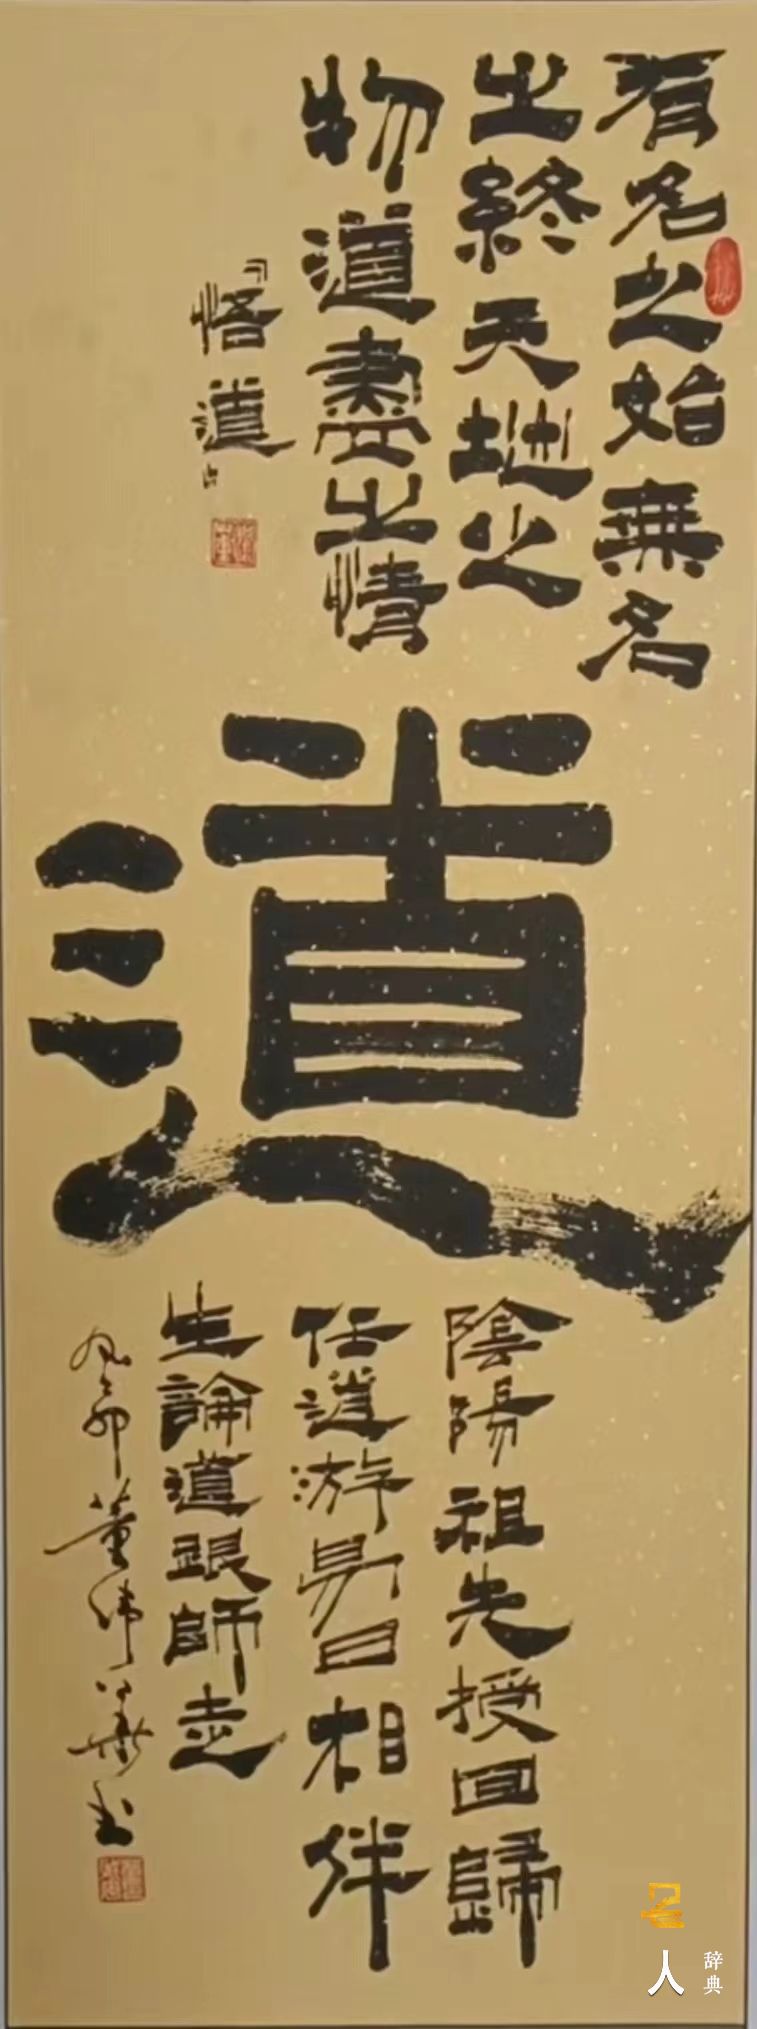 有名之始無名
之終天地之
物道盡之情
悟道
道
陰陽祖先授回歸
任道游易日相伴
生論道跟師走
癸卯董偉華書
名
人
辞典